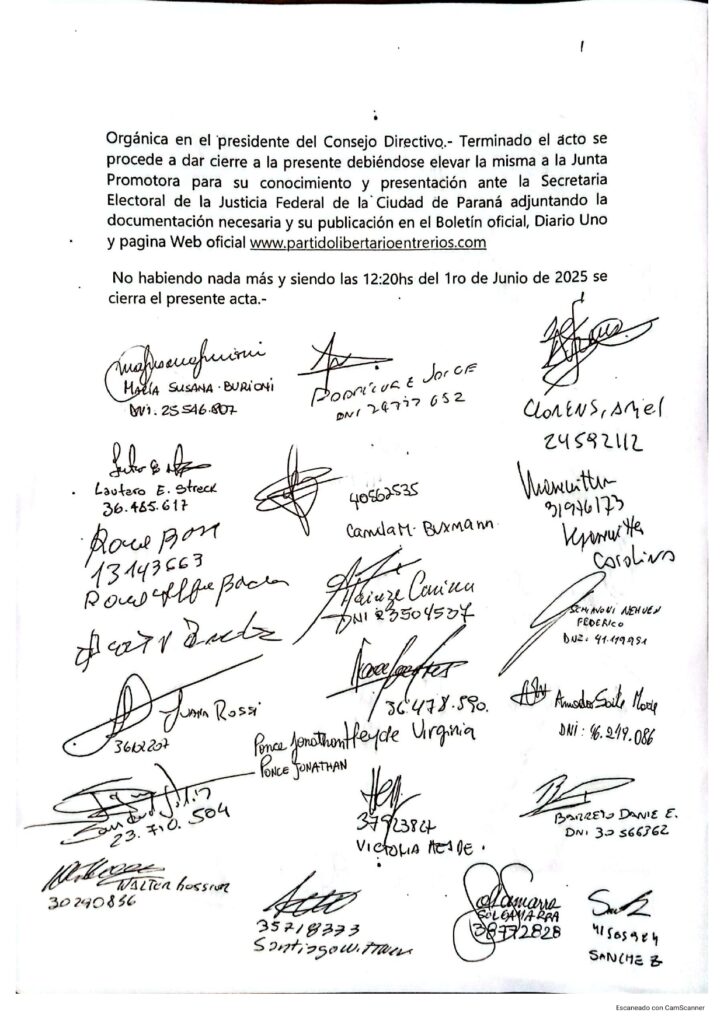 1
Orgánica en el presidente del Consejo Directivo.- Terminado el acto se
procede a dar cierre a la presente debiéndose elevar la misma a la Junta
Promotora para su conocimiento y presentación ante la Secretaria
Electoral de la Justicia Federal de la Ciudad de Paraná adjuntando la
documentación necesaria y su publicación en el Boletín oficial, Diario Uno
y pagina Web oficial www.partidolibertarioentrerios.com
No habiendo nada más y siendo las 12:20hs del 1ro de Junio de 2025 se
cierra el presente acta.-
MARÍA SUSANA BURIONI
DNI. 25546.807
JORGE
DNI 24777 652
CLORENS, Ariel
24592112
Lautaro E. Streck
36.485.617
40562535
Camila M. Buxmann
31976173
Carolina
13143663
DNI 23504537
NEHUEN
FEDERICO
DNI: 41.119.951
JUANA ROSSI
3612207
36.478.590.
Heyde Virginia
Ponce Jonathan
PONCE JONATHAN
DNI: 96.249.086
23.710.504
37923827
VICTORIA
BARRETO DANIE E.
DNI 30566362
WALTER
30240836
35718373
Santiago
38772828
41585984
SANCHEZ
Escaneado con CamScanner